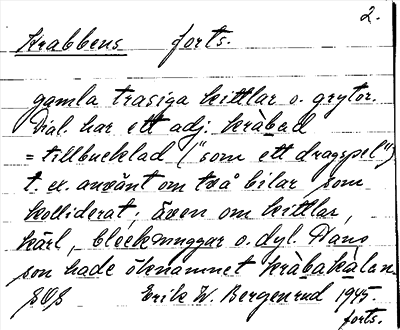 2.
Krabbens forts.
gamla trasiga kittlar o. grytor.
Dial. har ett adj. kràbad
= tillbucklad ("som ett dragspel")
t. ex. använt om två bilar som
kolliderat; även om kittlar,
kärl, bleckmuggar o. dyl. Hans
son hade öknamnet kràbakàlan.
Erik W. Bergenrud 1945.
forts.